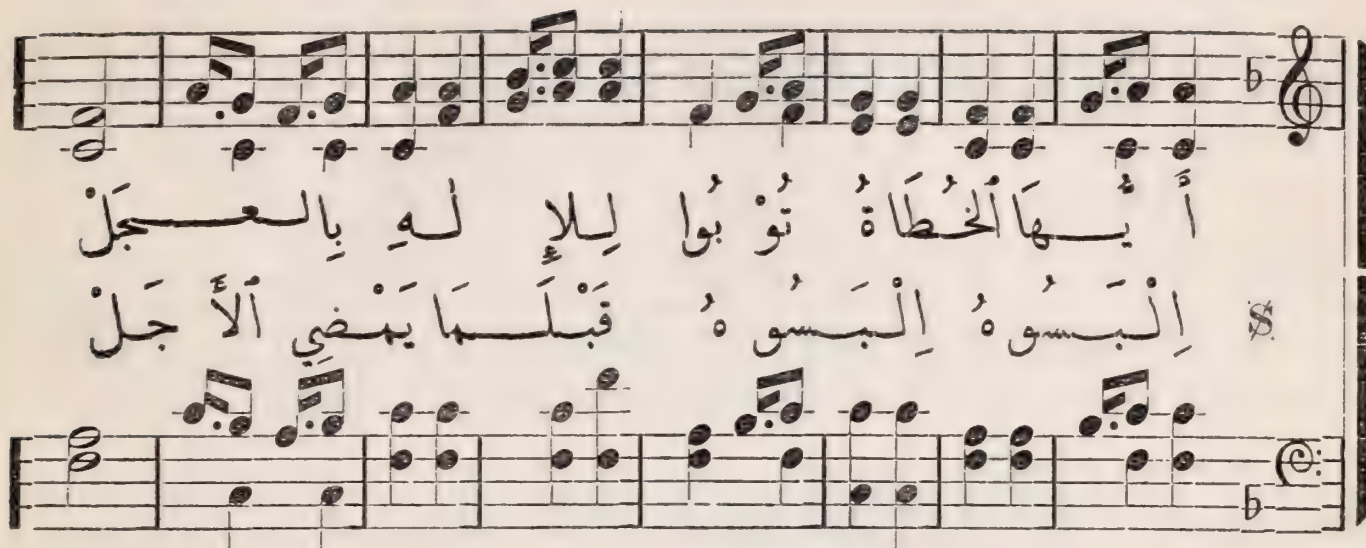 أَ يُّهَا ٱلْخُطَاةُ تُوْ بُوا لِلإِ لٰهِ بِالعَجَلْ
اِلْبَسُوهُ اِلْبَسُوهُ قَبْلَمَا يَمْضِي ٱلأَّ جَلْ